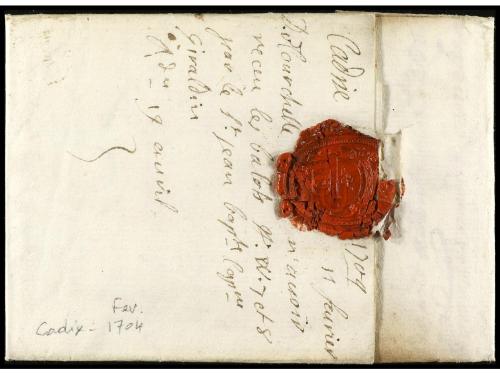 Cadix 1704
11 fevrier
D. Hourchelle m'avoir
receu les balots Nº. W. 7 et 8
par le Sr. jean Bapte. Capne
Giraldin
R du
19 avril.
Fev.
Cadix - 1704